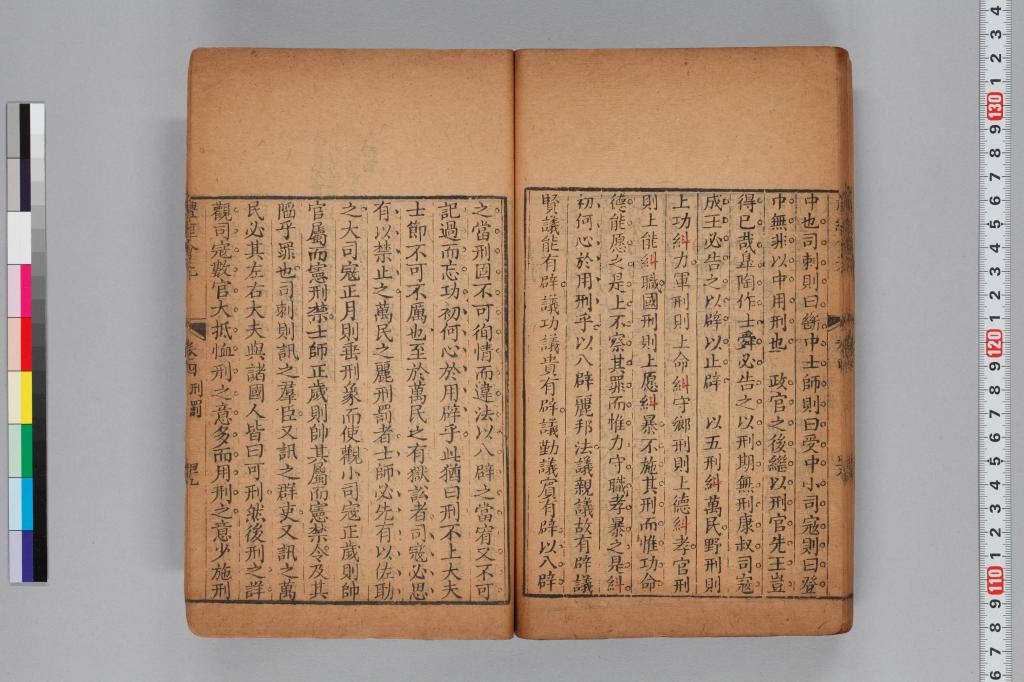 中也司刺則曰斷中士師則曰受中小司寇則曰登
中無非以中用刑也 政官之後繼以刑官先王豈
得已哉臯陶作士舜必告之以刑期無刑康叔司寇
成王必告之以辟以止辟 以五刑糾萬民野刑則
上功糾力軍刑則上命糾守鄉刑則上德糾孝官刑
則上能糾職國刑則上愿糾暴不施其刑而惟功命
德能愿之是上不察其罪而惟力守職孝暴之是糾
初何心於用刑乎以八辟麗邦法議親議故有辟議
賢議能有辟議功議貴有辟議勤議賓有辟以八辟
之當刑固不可徇情而違法以八辟之當宥又不可
記過而忘功初何心於用辟乎此猶曰刑不上大夫
士節不可不厲也至於萬民之有獄訟者司寇必思
有以禁止之萬民之麗刑罰者士師必先有以佐助
之大司寇正月則垂刑象而使觀小司寇正歲則帥
官屬而憲刑禁士師正歲則帥其屬而憲禁令及其
陷乎罪也司刺則訊之羣臣又訊之群吏又訊之萬
民必其左右大夫與諸國人皆曰可刑然後刑之詳
觀司寇數官大抵恤刑之意多而用刑之意少施刑
卷四 刑罰